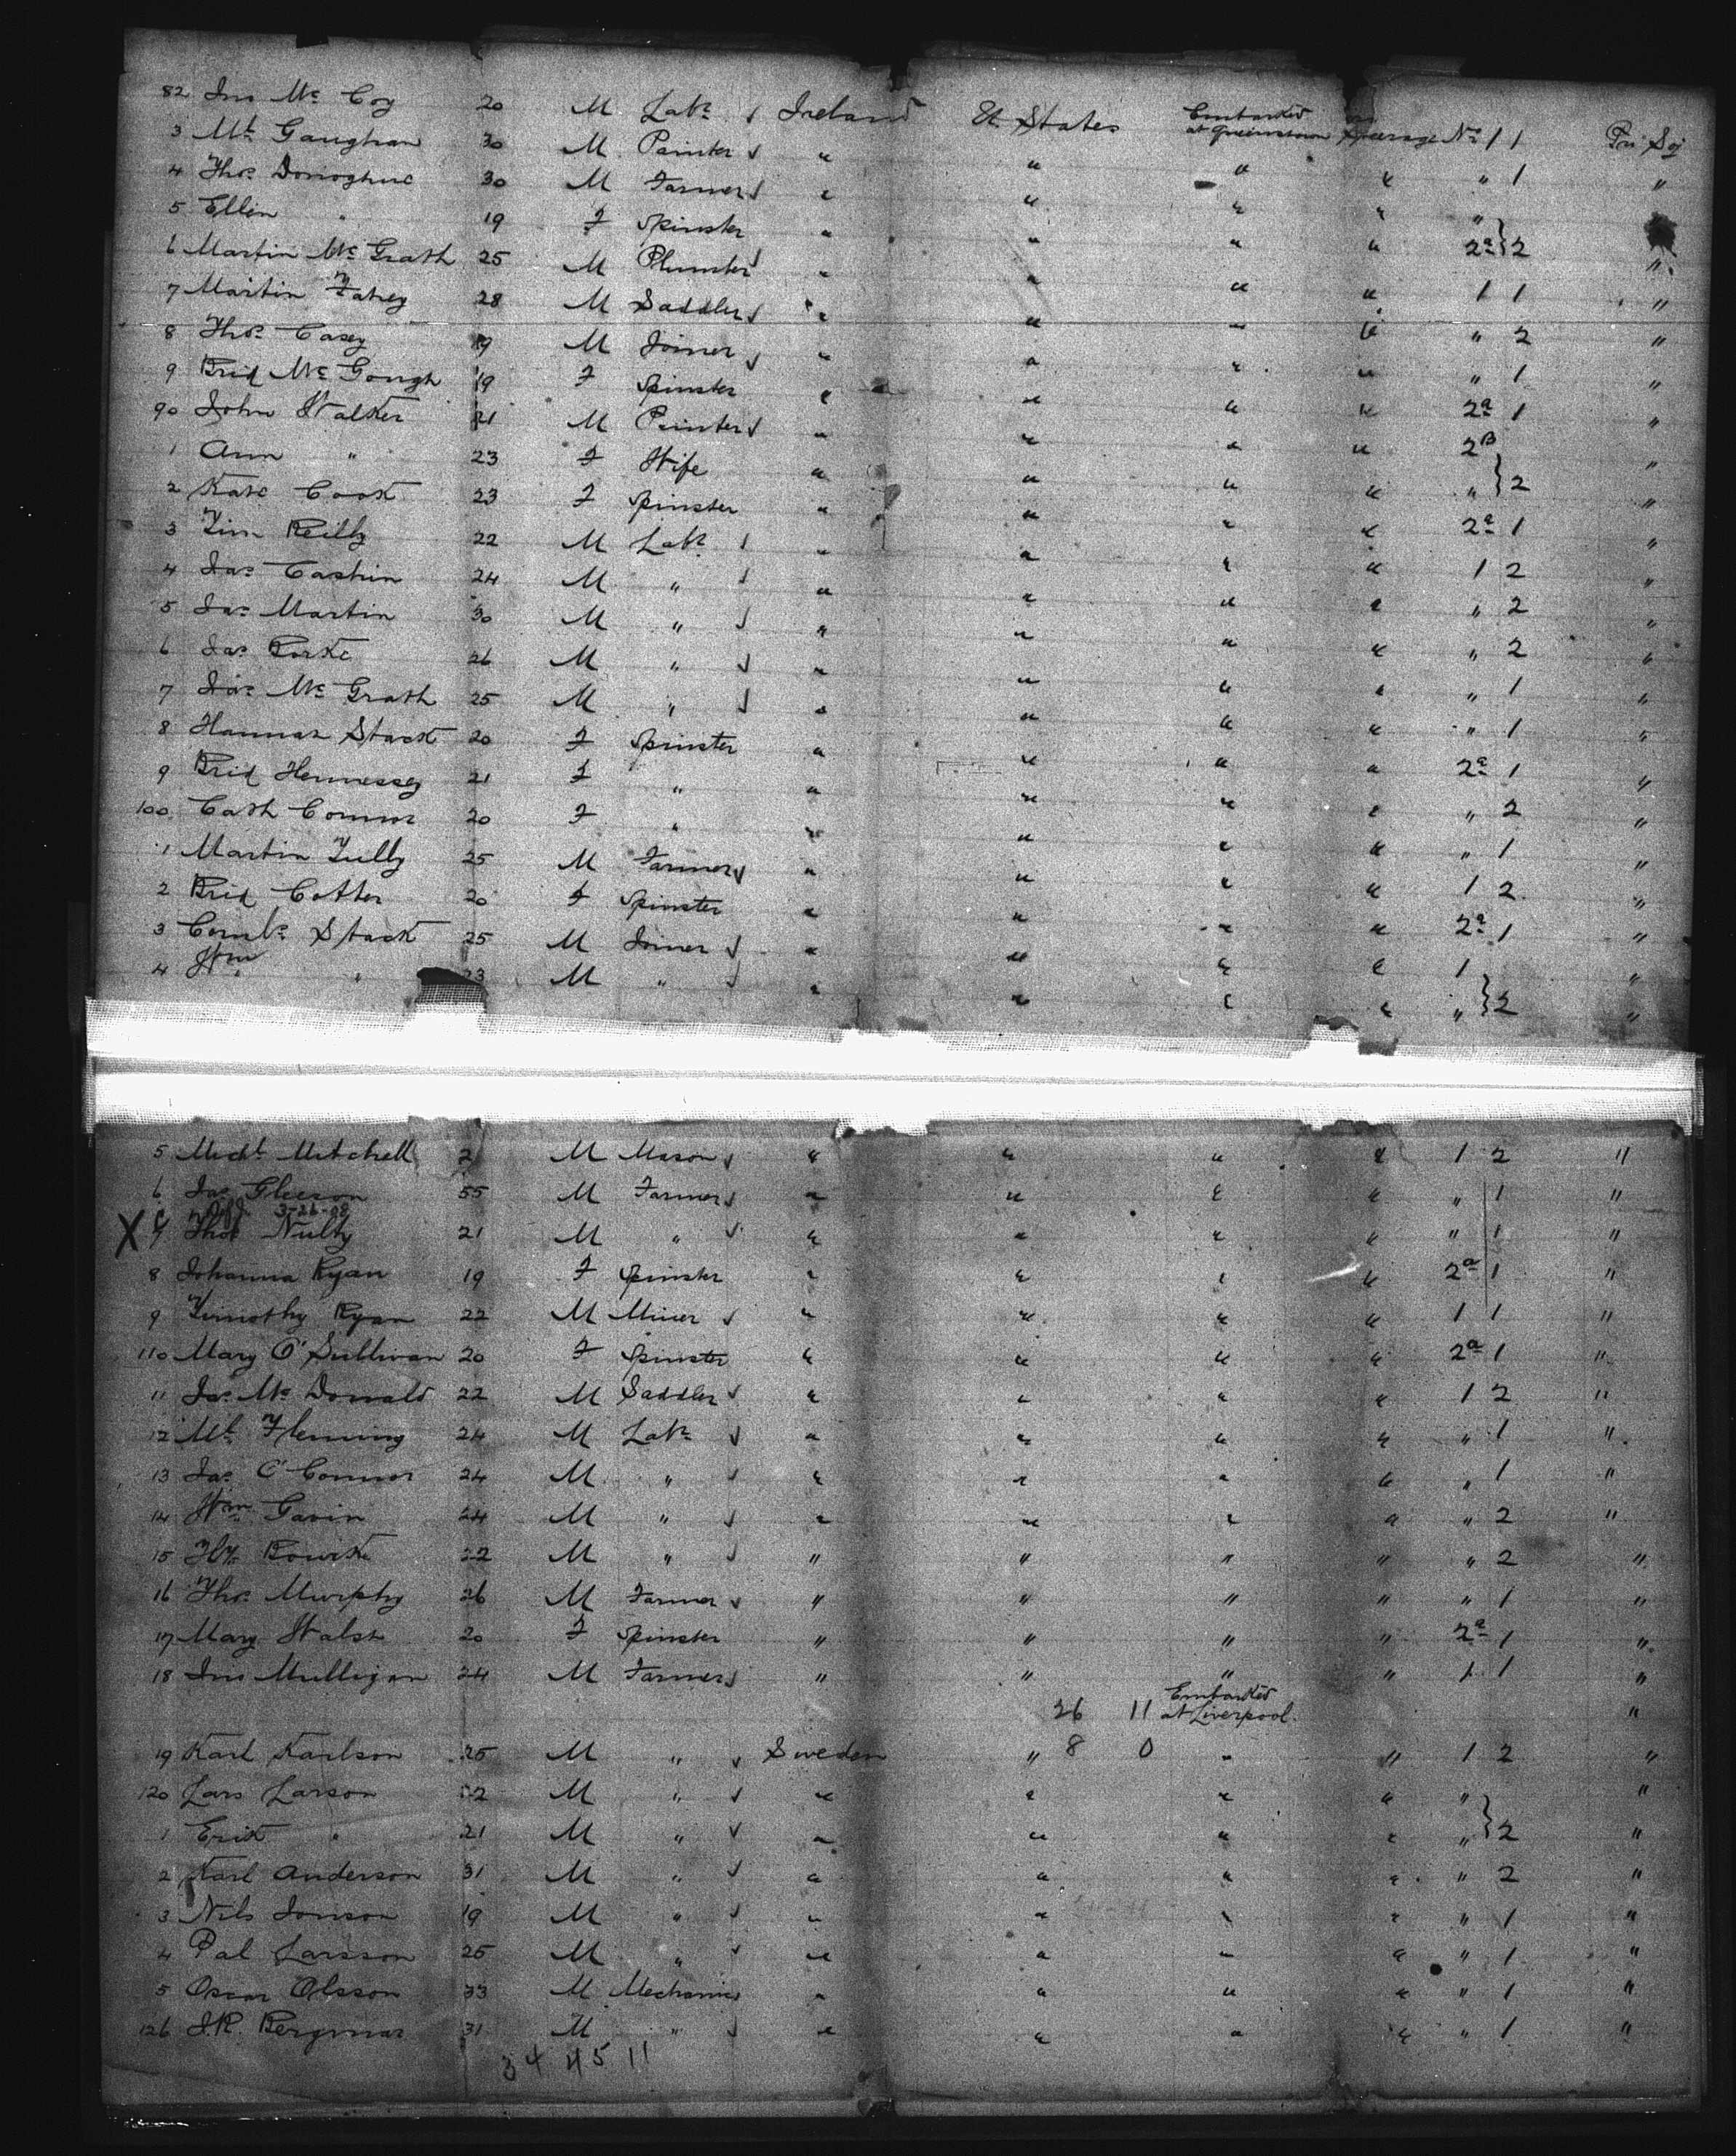 82 Jno Mc Coy 20 M Labr Ireland U. States Embarked at Queenstown Steerage No 1 1 Pro Soj
3 Ml Gaughan 30 M Painter " " " " " 1 "
4 Thos Donoghue 30 M Farmer " " " " "
5 Ellen " 19 F Spinster " " " " 2a } 2 "
6 Martin Mc Grath 25 M Plumber " " " " 1 1 "
7 Martin Fahey 28 M Saddler " " " " " 2 "
8 Thos Casey 19 M Joiner " " " " " 1 "
9 Brid Mc Gough 19 F Spinster " " " " 2a 1 "
90 John Walker 21 M Painter " " " " 2B "
1 Ann " 23 F Wife " " " " " } 2 "
2 Kate Cook 23 F Spinster " " " " 2a 1 "
3 Tim Reilly 22 M Labr " " " " 1 2 "
4 Jas Cashin 24 M " " " " " " 2 "
5 Jas Martin 30 M " " " " " " 2 "
6 Jas Rorke 26 M " " " " " " 1 "
7 Jas Mc Grath 25 M " " " " " " 1 "
8 Hannah Stack 20 F Spinster " " " " 2a 1 "
9 Brid Hennessey 21 F " " " " " " 2 "
100 Cath Connor 20 F " " " " " " 1 "
1 Martin Tully 25 M Farmer " " " " 1 2 "
2 Brid Cotter 20 F Spinster " " " " 2a 1 "
3 Cornls Stack 25 M Joiner " " " " 1 "
4 Wm " 23 M " " " " " " } 2 "
5 Michl Mitchell 2 M Mason " " " " 1 2 "
6 Jas Gleeson 55 M Farmer " " " " " 1 "
3-26-08
X C 7 Thos Nulty 21 M " " " " " " 1 "
8 Johanna Ryan 19 F Spinster " " " " 2a 1 "
9 Timothy Ryan 22 M Miner " " " " 1 1 "
110 Mary O'Sullivan 20 F Spinster " " " " 2a 1 "
11 Jas Mc Donald 22 M Saddler " " " " 1 2 "
12 Ml Fleming 24 M Labr " " " " " 1 "
13 Jas O'Connor 24 M " " " " " " 1 "
14 Wm Gavin 24 M " " " " " " 2 "
15 Hy Bourke 22 M " " " " " " 2 "
16 Thos Murphy 26 M Farmer " " " " " 1 "
17 Mary Walsh 20 F Spinster " " " " 2a 1 "
18 Jno Mulligan 24 M Farmer " " " " 1 1 "
26 11 Embarked at Liverpool. "
19 Karl Karlson 25 M " Sweden " 8 0 " " 1 2 "
120 Lars Larson 22 M " " " " " " "
1 Erik " 21 M " " " " " " } 2 "
2 Karl Anderson 31 M " " " " " " 2 "
3 Nils Jonson 19 M " " " " " " 1 "
4 Pal Larsson 25 M " " " " " " 1 "
5 Oscar Olsson 33 M Mechanic " " " " " 1 "
126 J.R. Bergman 31 M " " " " " " 1 "
34 45 11